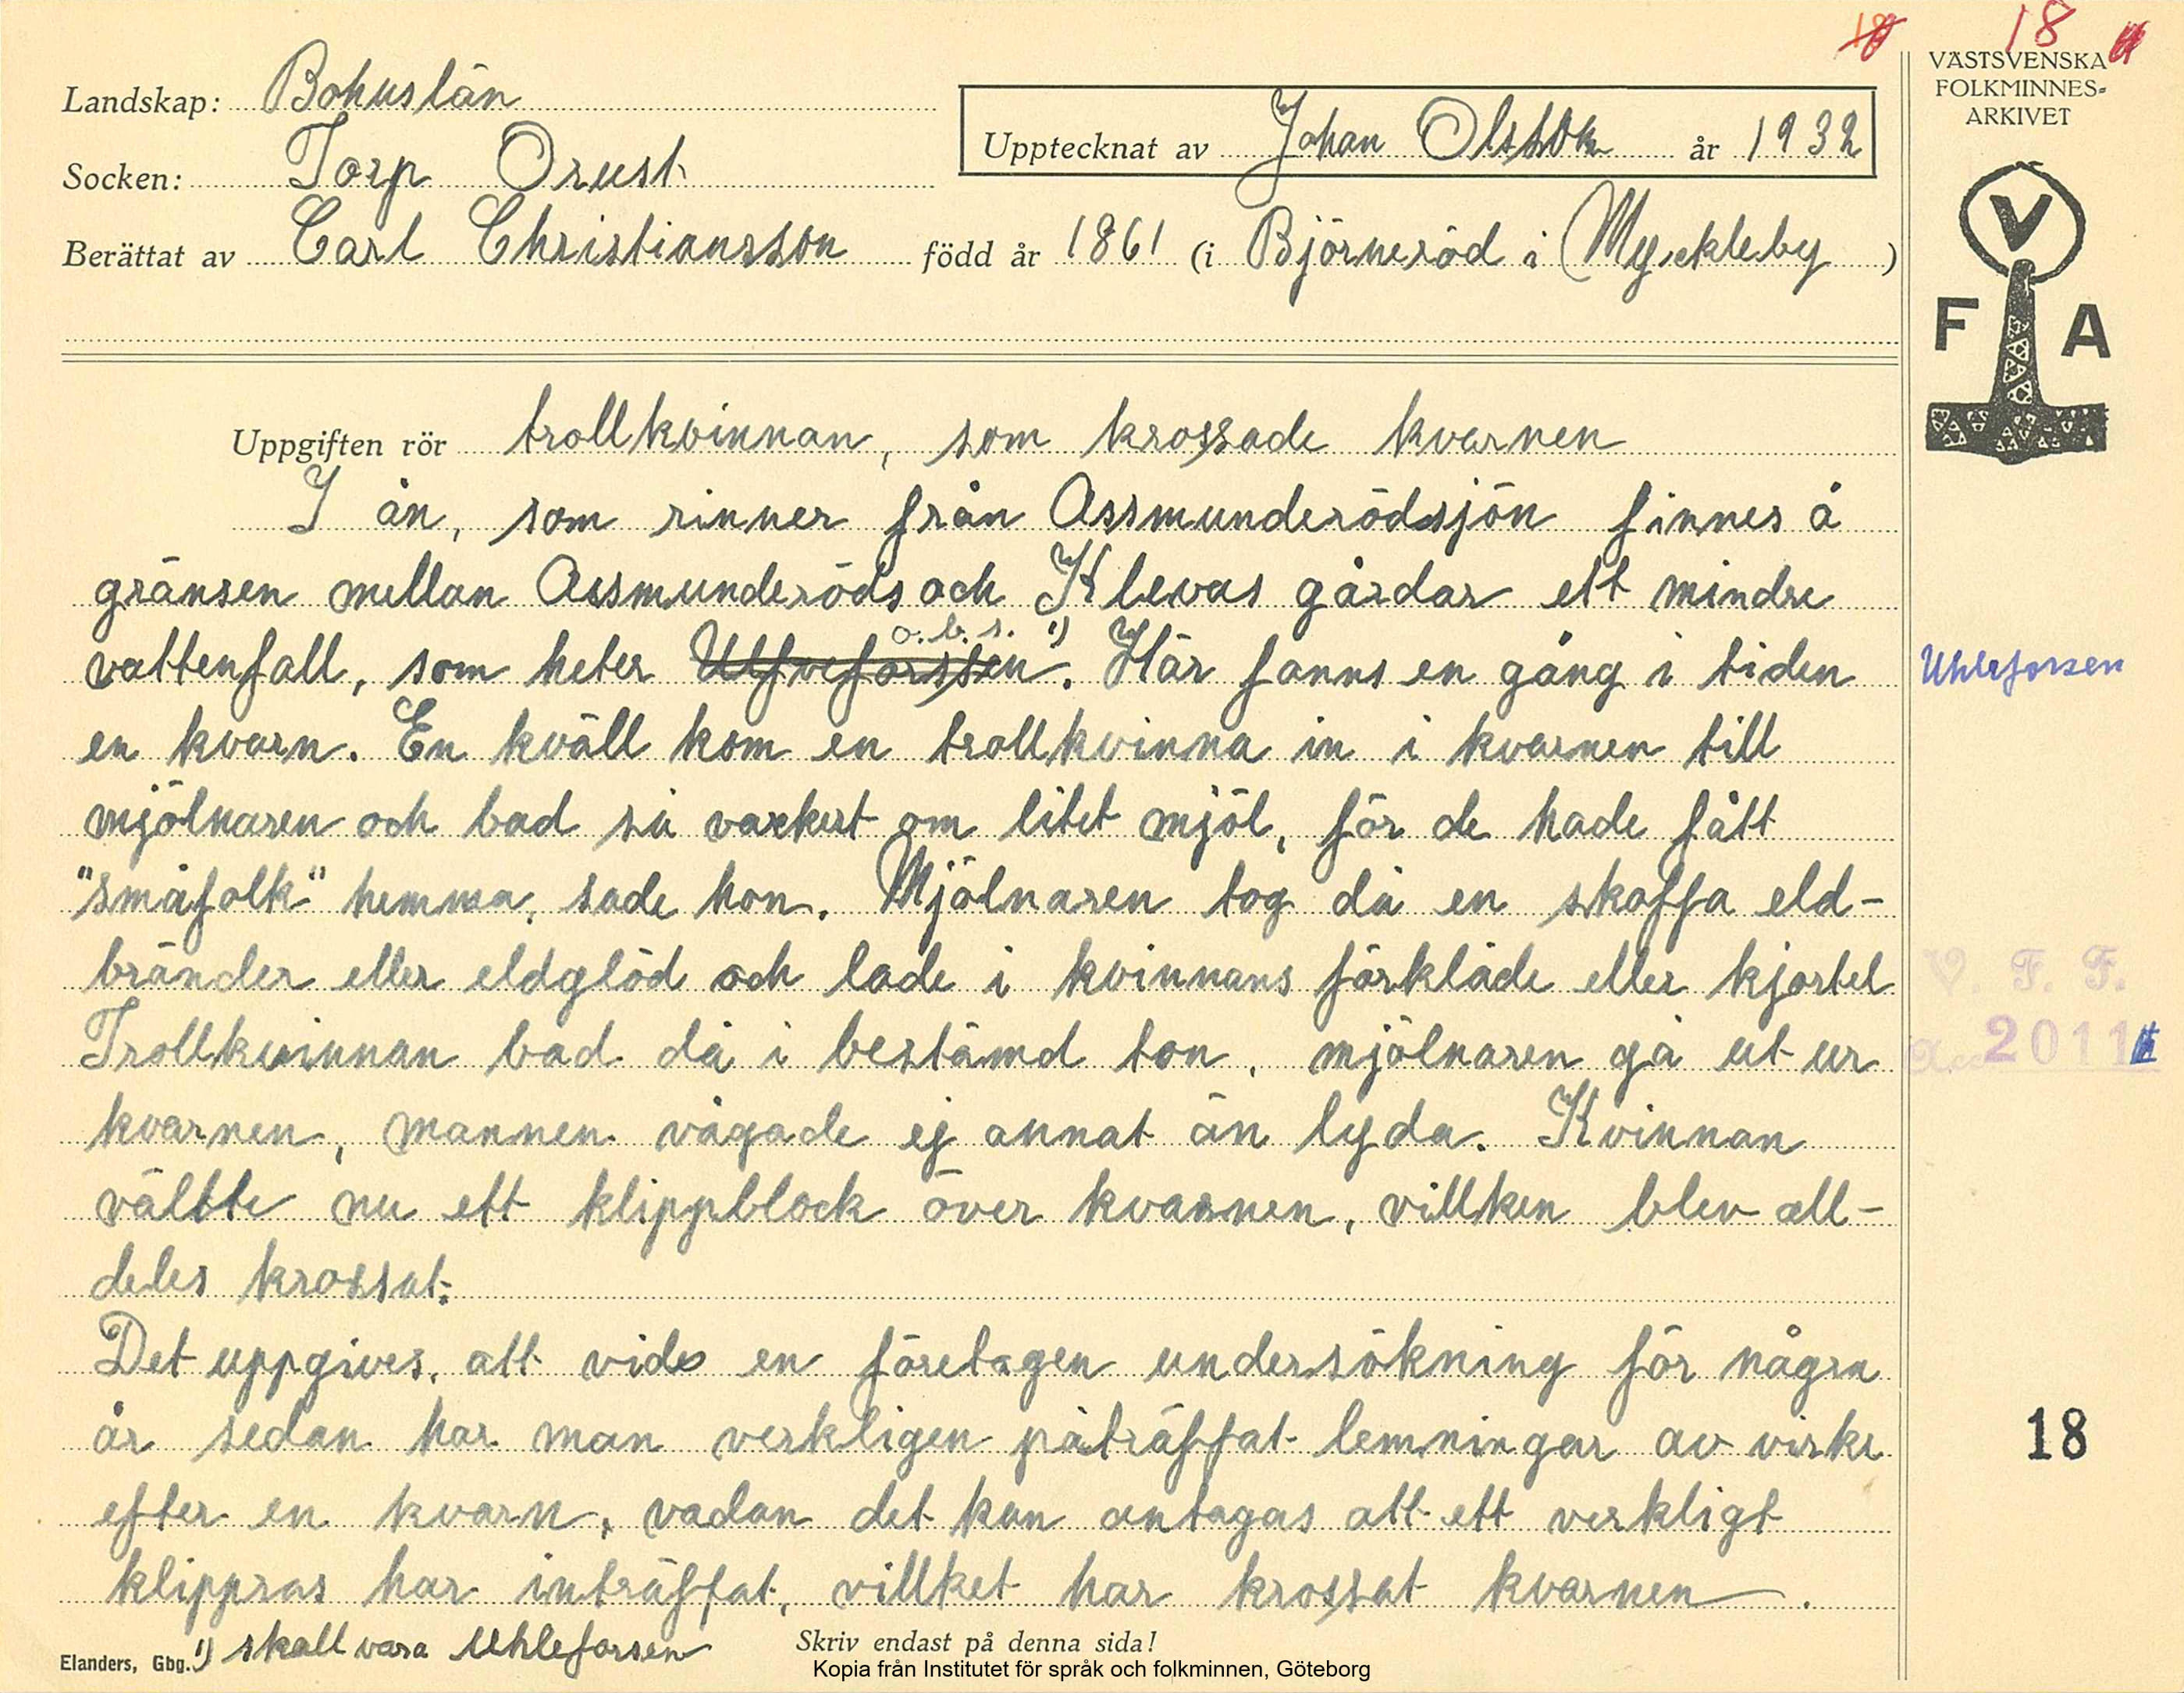 18
VÄSTSVENSKA
FOLKMINNES-
ARKIVET
V
F A
Landskap: Bohuslän
Socken: Torp Orust
Upptecknat av Johan Olsson år 1932
Berättat av Carl Christiansson född år 1861 (i Björneröd i Myckleby)
Uppgiften rör trollkvinnan, som krossade kvarnen
I ån, som rinner från Assmunderödsjön finnes å
gränsen mellan Assmunderöds och Klevas gårdar ett mindre
o.b.s. 1)
vattenfall, som heter Ulfveforssen. Här fanns en gång i tiden
Uhleforsen
en kvarn. En kväll kom en trollkvinna in i kvarnen till
mjölnaren och bad så vackert om litet mjöl, för de hade fått
"småfolk" hemma, sade hon. Mjölnaren tog då en skoffa eld-
bränder eller eldglöd och lade i kvinnans förkläde eller kjortel
V. F. F.
Trollkvinnan bad då i bestämd ton, mjölnaren gå ut ur
Acc 2011
kvarnen, mannen vågade ej annat än lyda. Kvinnan
vältte nu ett klippblock över kvarnen, villken blev all-
deles krossat.
Det uppgives, att vid en företagen undersökning för några
år sedan har man verkligen påträffat lemningar av virke
18
efter en kvarn, vadan det kan antagas att ett verkligt
klippras har inträffat, villket har krossat kvarnen.
Elanders, Gbg. 1) skall vara Uhleforsen
Skriv endast på denna sida!
Kopia från Institutet för språk och folkminnen, Göteborg